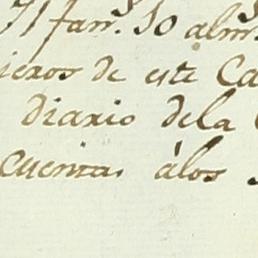 71 fan.s 10 alm.s
ieros de este Ca
diario dela
cuentas álos